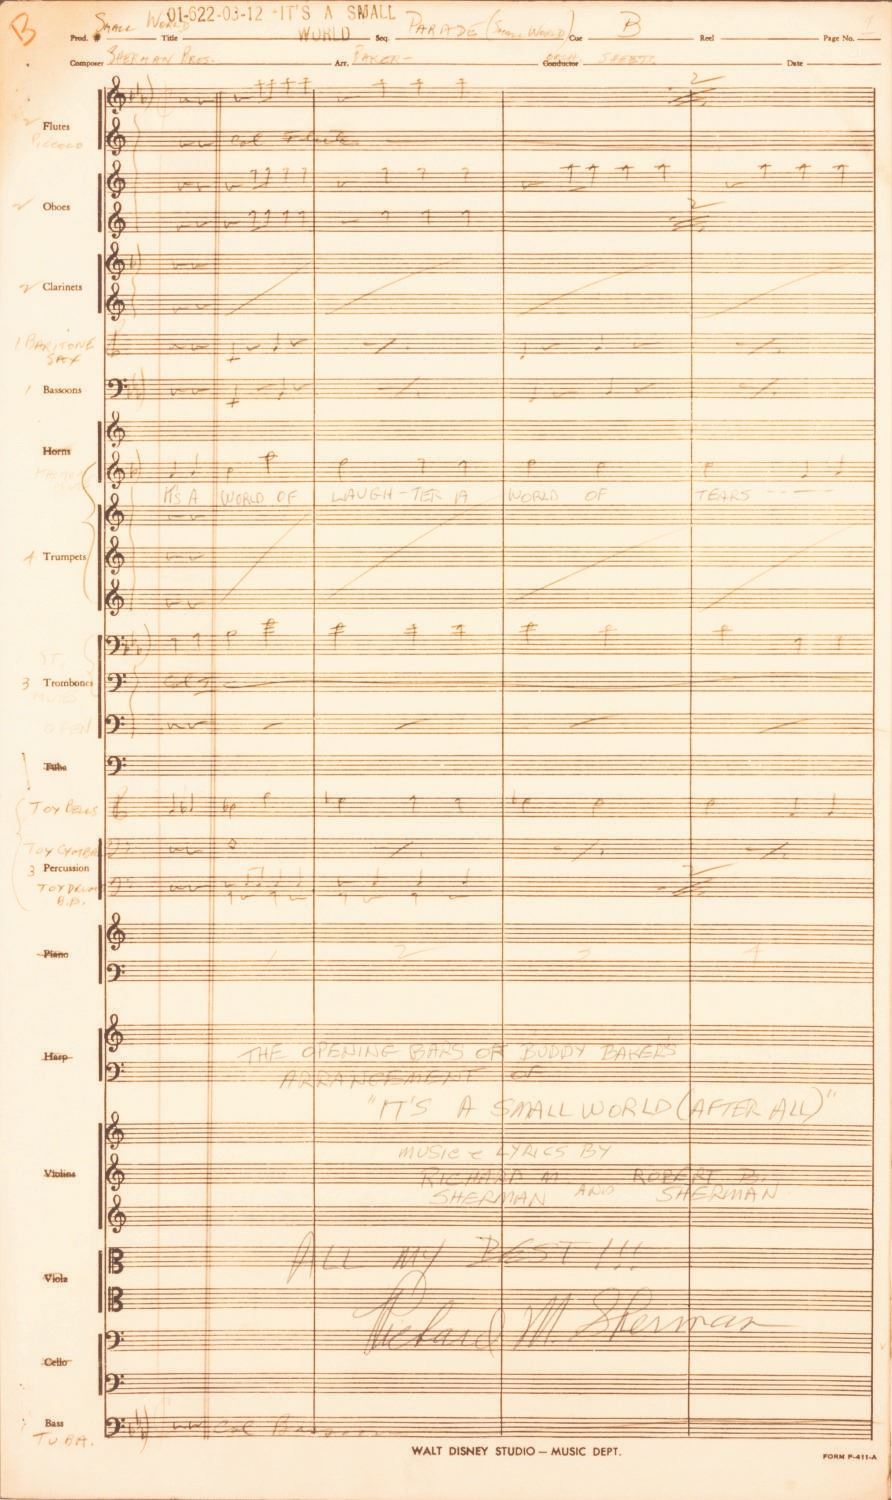 B
01-622-03-12 -IT'S A SMALL
WORLD
Prod. # SMALL WORLD Title Seq. PARADE (SMALL WORLD) Cue B Reel Page No. 1
Composer SHERMAN BROS. Arr. BAKER- Conductor Date
2 Flutes
PICCOLO
Col Flute
2 Oboes
2 Clarinets
1 BARITONE
SAX
1 Bassoons
Horns
IT'S A WORLD OF LAUGH-TER A WORLD OF TEARS ----
4 Trumpets
ST.
3 Trombones
MUTE
OPEN
Col
Tuba
TOY BELLS
TOY CYMBAL
3 Percussion
TOY DRUM
B.D.
Piano
1 2 3 4
Harp
THE OPENING BARS OF BUDDY BAKER'S
ARRANGEMENT OF
"IT'S A SMALL WORLD (AFTER ALL)"
MUSIC & LYRICS BY
Violins
RICHARD M. ROBERT B.
SHERMAN AND SHERMAN
ALL MY BEST!!!
Viola
Richard M. Sherman
Cello
Bass
TUBA.
Col Bassoon
WALT DISNEY STUDIO — MUSIC DEPT.
FORM P-411-A